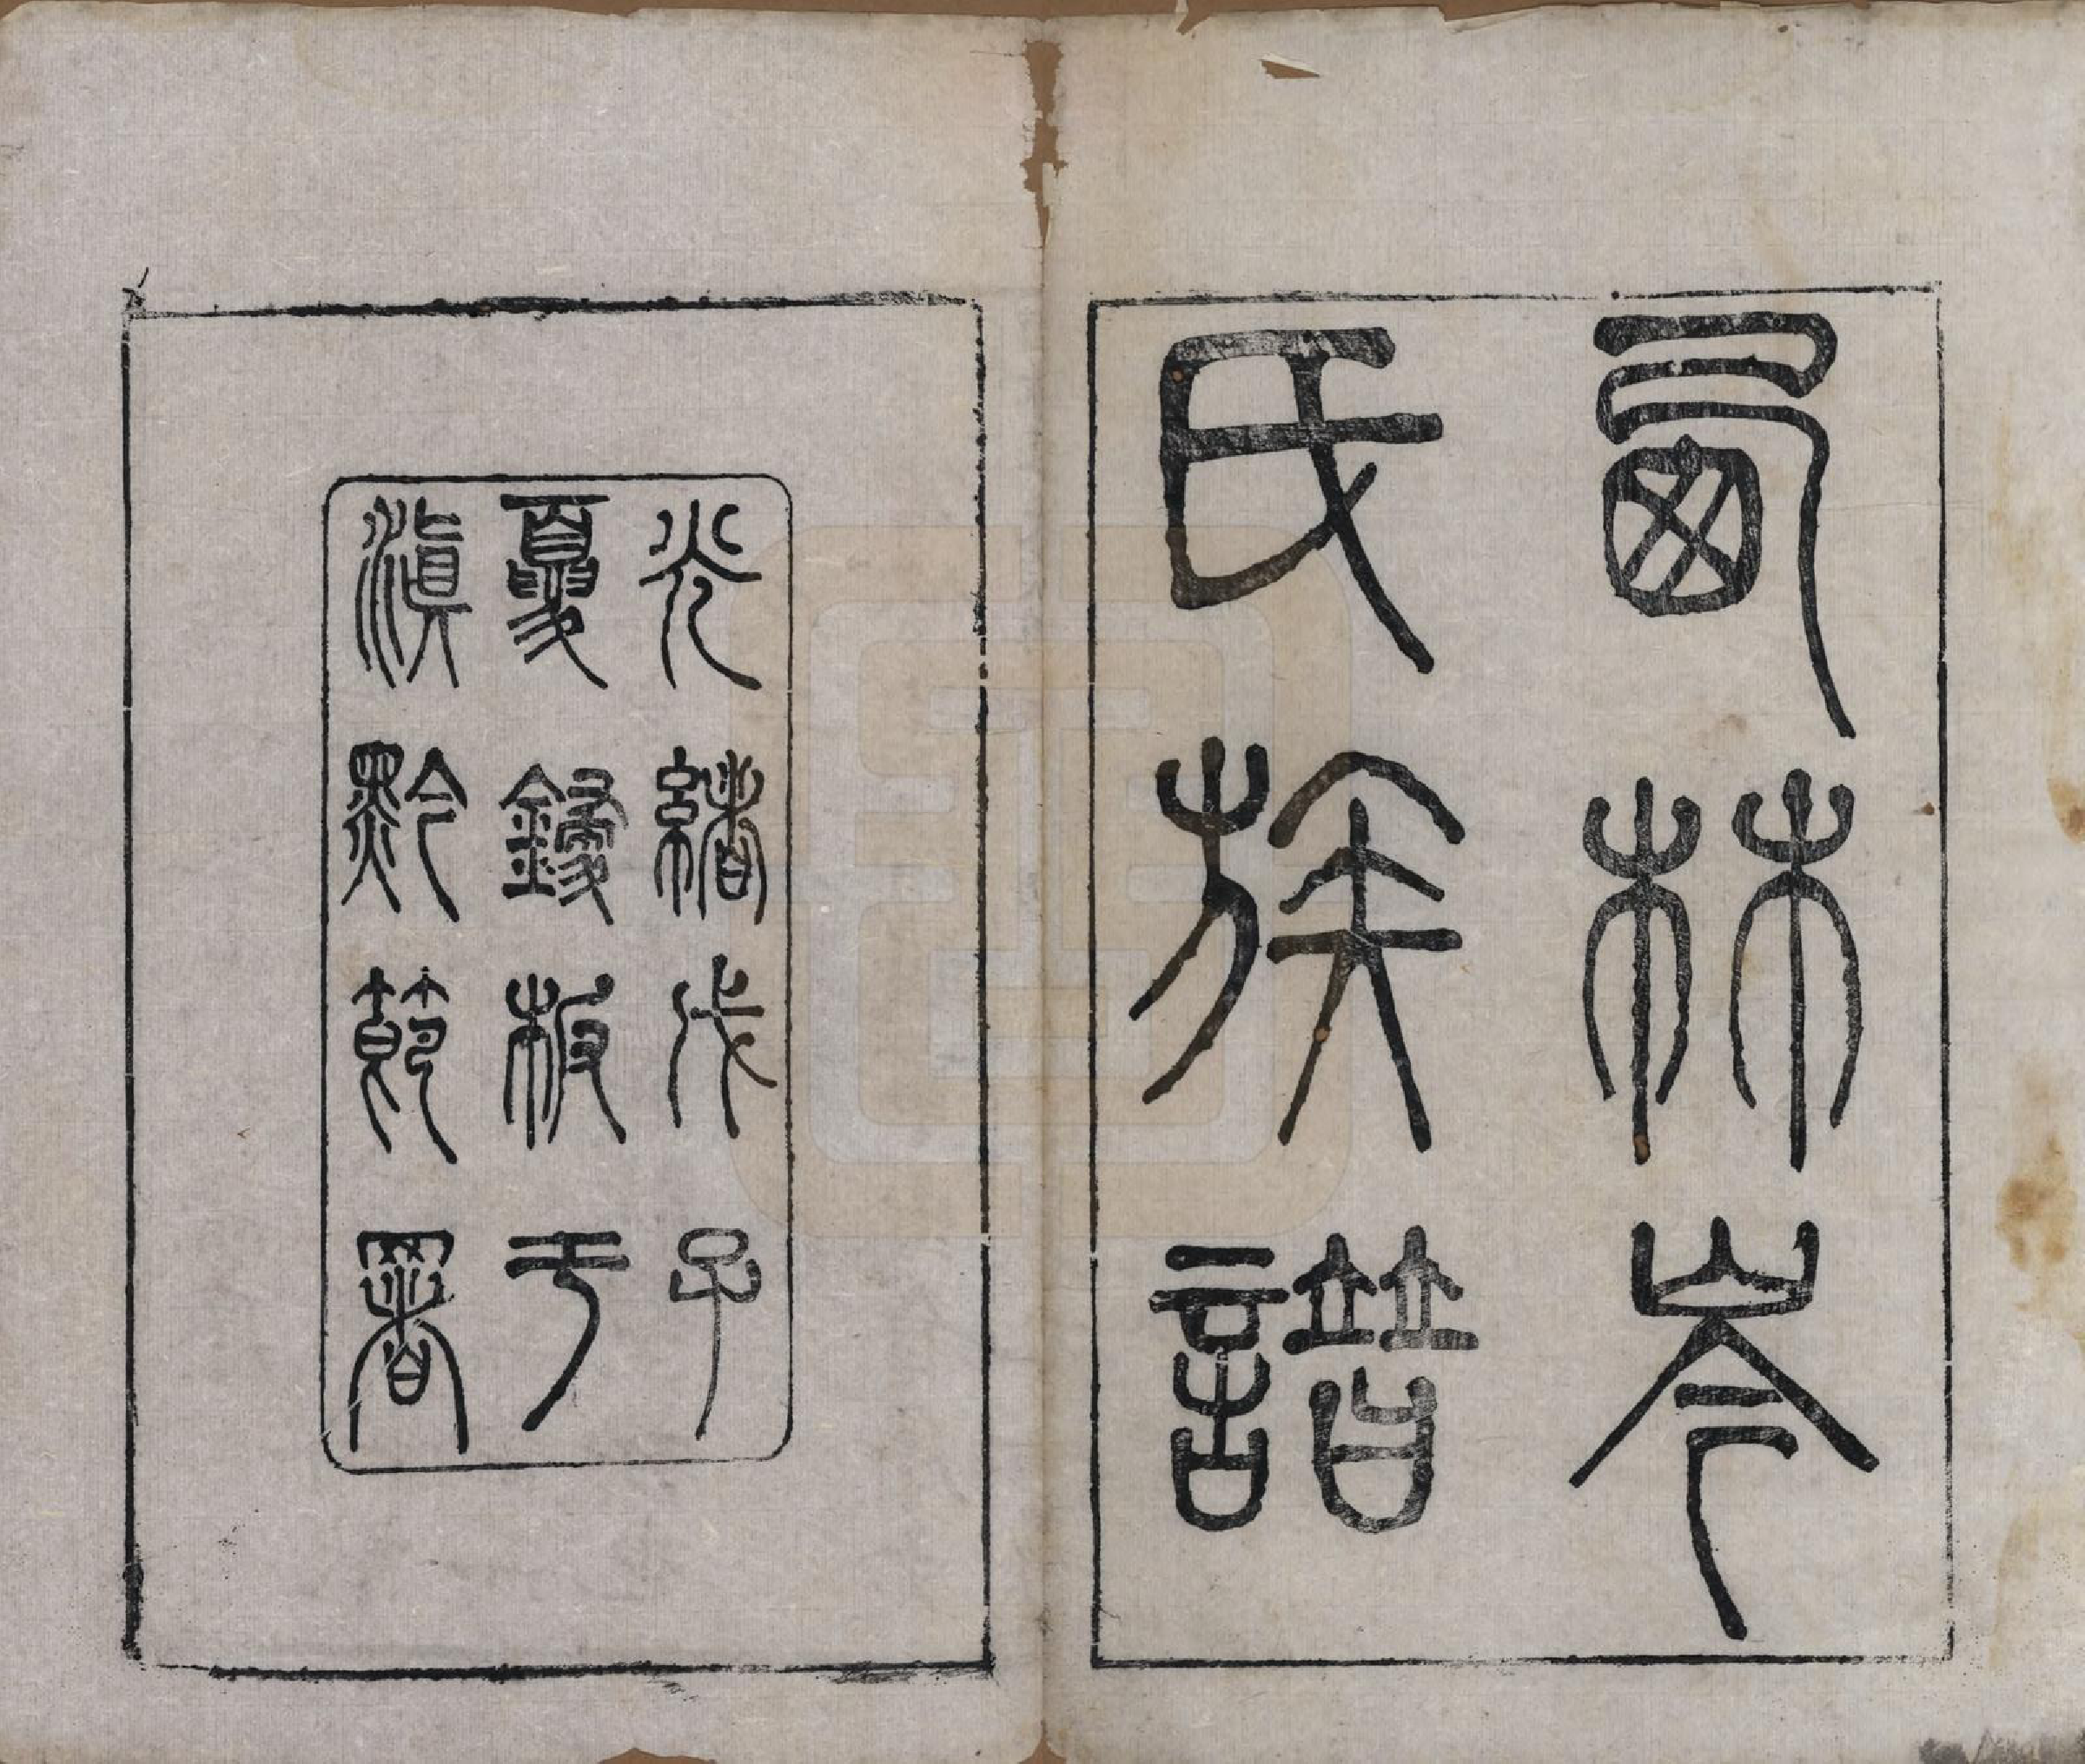 西林岑
氏族譜
光緒戊子
夏鋟板于
滇黔節署